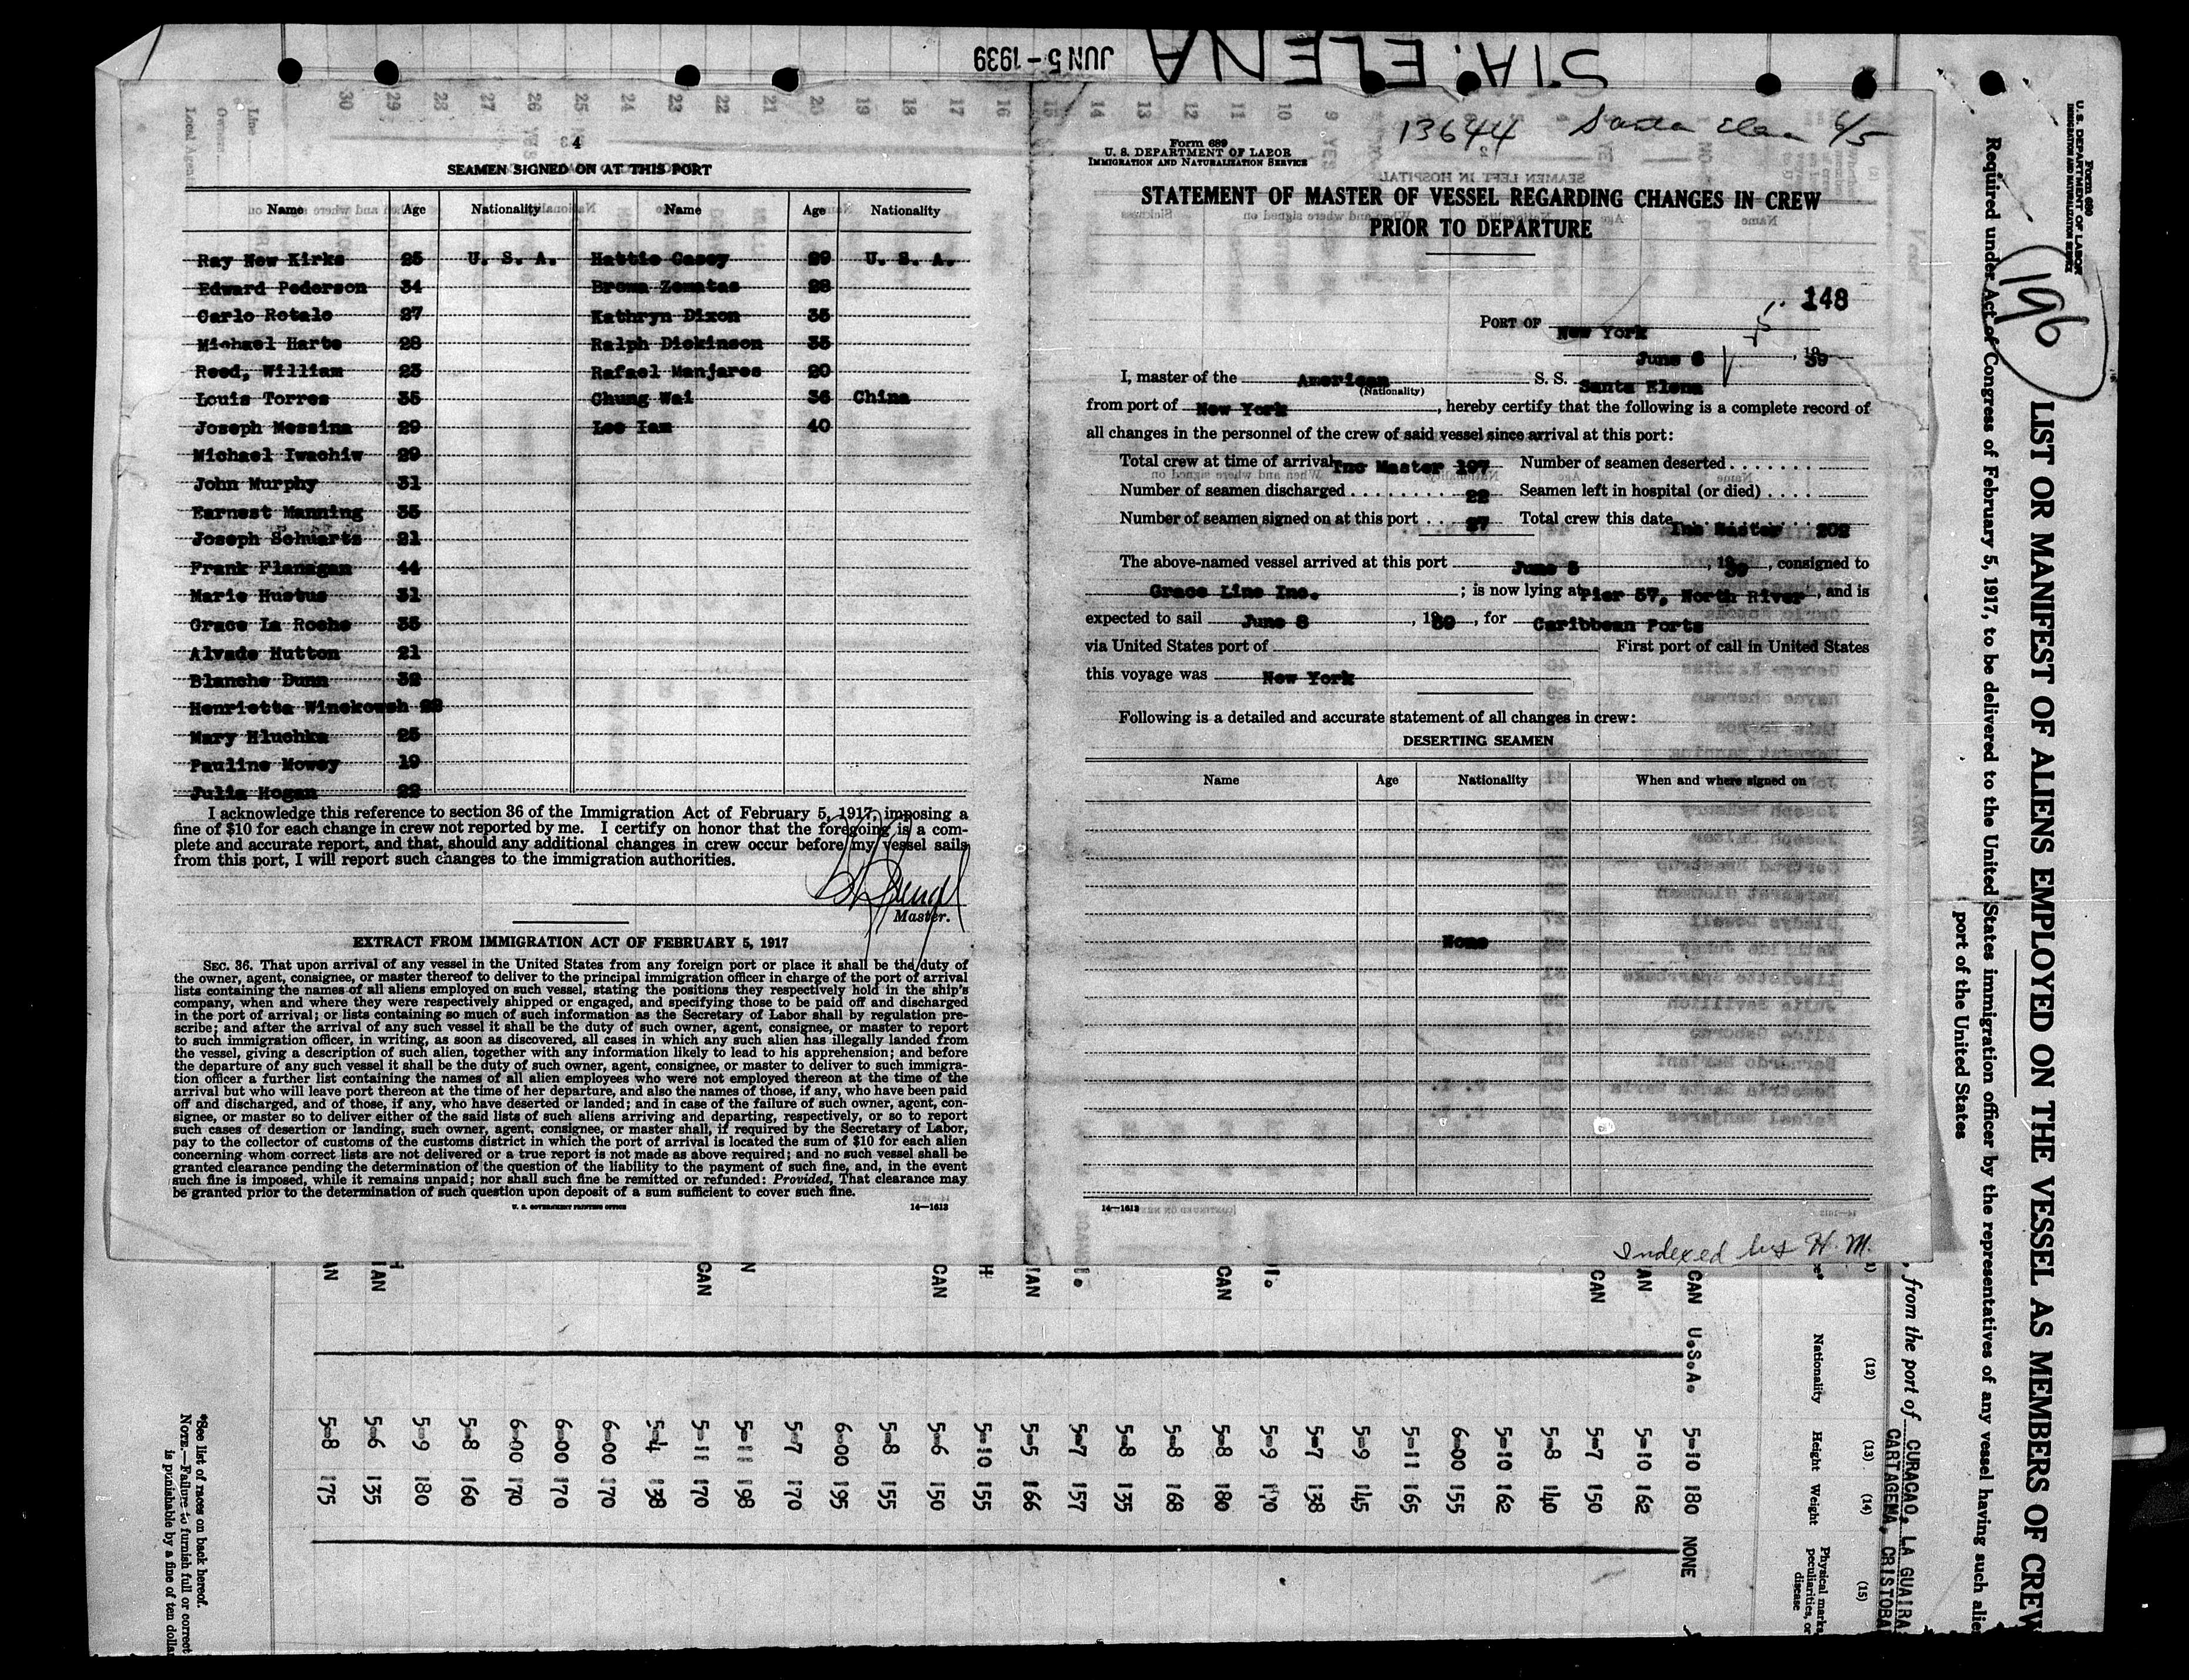 JUN 5 - 1939
STA. ELENA
4
SEAMEN SIGNED ON AT THIS PORT
Name Age Nationality Name Age Nationality
Ray New Kirks 25 U. S. A. Hattie Casey 29 U. S. A.
Edward Pederson 34 Brown Zematas 28
Carlo Rotalo 27 Kathryn Dixon 35
Michael Harte 28 Ralph Dickinson 35
Reed, William 23 Rafael Manjares 20
Louis Torres 35 Chung Wai 36 China
Joseph Messina 29 Lee Iam 40
Michael Iwachiw 29
John Murphy 31
Earnest Manning 35
Joseph Schwartz 21
Frank Flanagan 44
Marie Hustus 31
Grace La Roche 35
Alvade Hutton 21
Blanche Dunn 32
Henrietta Winskowsh 22
Mary Hluchka 25
Pauline Mowey 19
Julia Hogan 22
I acknowledge this reference to section 36 of the Immigration Act of February 5, 1917, imposing a
fine of $10 for each change in crew not reported by me. I certify on honor that the foregoing is a com-
plete and accurate report, and that, should any additional changes in crew occur before my vessel sails
from this port, I will report such changes to the immigration authorities.
Master.
EXTRACT FROM IMMIGRATION ACT OF FEBRUARY 5, 1917
SEC. 36. That upon arrival of any vessel in the United States from any foreign port or place it shall be the duty of
the owner, agent, consignee, or master thereof to deliver to the principal immigration officer in charge of the port of arrival
lists containing the names of all aliens employed on such vessel, stating the positions they respectively hold in the ship's
company, when and where they were respectively shipped or engaged, and specifying those to be paid off and discharged
in the port of arrival; or lists containing so much of such information as the Secretary of Labor shall by regulation pre-
scribe; and after the arrival of any such vessel it shall be the duty of such owner, agent, consignee, or master to report
to such immigration officer, in writing, as soon as discovered, all cases in which any such alien has illegally landed from
the vessel, giving a description of such alien, together with any information likely to lead to his apprehension; and before
the departure of any such vessel it shall be the duty of such owner, agent, consignee, or master to deliver to such immigra-
tion officer a further list containing the names of all alien employees who were not employed thereon at the time of the
arrival but who will leave port thereon at the time of her departure, and also the names of those, if any, who have been paid
off and discharged, and of those, if any, who have deserted or landed; and in case of the failure of such owner, agent, con-
signee, or master so to deliver either of the said lists of such aliens arriving and departing, respectively, or so to report
such cases of desertion or landing, such owner, agent, consignee, or master shall, if required by the Secretary of Labor,
pay to the collector of customs of the customs district in which the port of arrival is located the sum of $10 for each alien
concerning whom correct lists are not delivered or a true report is not made as above required; and no such vessel shall be
granted clearance pending the determination of the question of the liability to the payment of such fine, and, in the event
such fine is imposed, while it remains unpaid; nor shall such fine be remitted or refunded: Provided, That clearance may
be granted prior to the determination of such question upon deposit of a sum sufficient to cover such fine.
U. S. GOVERNMENT PRINTING OFFICE 14—1613
13644 Santa Elena 6/5
Form 689
U. S. DEPARTMENT OF LABOR
IMMIGRATION AND NATURALIZATION SERVICE
STATEMENT OF MASTER OF VESSEL REGARDING CHANGES IN CREW
PRIOR TO DEPARTURE
148
PORT OF New York
June 8, 1939
I, master of the American S. S. Santa Elena
(Nationality)
from port of New York, hereby certify that the following is a complete record of
all changes in the personnel of the crew of said vessel since arrival at this port:
Total crew at time of arrival Inc Master 197 Number of seamen deserted
Number of seamen discharged 22 Seamen left in hospital (or died)
Number of seamen signed on at this port 27 Total crew this date Inc Master 202
The above-named vessel arrived at this port June 5, 1939, consigned to
Grace Line Inc.; is now lying at Pier 57, North River, and is
expected to sail June 8, 1939, for Caribbean Ports
via United States port of First port of call in United States
this voyage was New York
Following is a detailed and accurate statement of all changes in crew:
DESERTING SEAMEN
Name Age Nationality When and where signed on
None
14—1613
Indexed by H. M.
Form 680
U. S. DEPARTMENT OF LABOR
IMMIGRATION AND NATURALIZATION SERVICE
196
LIST OR MANIFEST OF ALIENS EMPLOYED ON THE VESSEL AS MEMBERS OF CREW
Required under Act of Congress of February 5, 1917, to be delivered to the United States immigration officer by the representatives of any vessel having such alie
port of the United States
, from the port of CURACAO, LA GUAIRA
CARTAGENA, CRISTOBA
(12) (13) (14) (15)
Nationality Height Weight Physical marks, peculiarities, or disease
CAN U.S.A. 5-10 180 NONE
AN 5-10 162
CAN 5-7 150
5-8 140
5-10 162
6-00 155
5-11 165
5-9 145
5-7 138
5-9 170
CAN 5-8 180
5-8 168
5-8 135
5-7 157
IAN 5-5 166
H 5-10 155
CAN 5-6 150
5-8 155
6-00 195
5-7 170
N 5-11 198
CAN 5-11 170
5-4 138
6-00 170
6-00 170
6-00 170
5-8 160
5-9 180
IAN 5-6 135
AN 5-8 175
*See list of races on back hereof.
NOTE.—Failure to furnish full or correct
is punishable by a fine of ten dolla